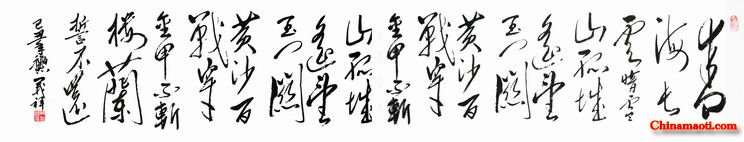 青
海长
雲暗雪
山孤城
遥望
玉门關
黄沙百
戰穿
金甲不斬
山孤城
遥望
玉门關
黄沙百
戰穿
金甲不斬
楼蘭
誓不還
己丑年
Chinamaoti.com